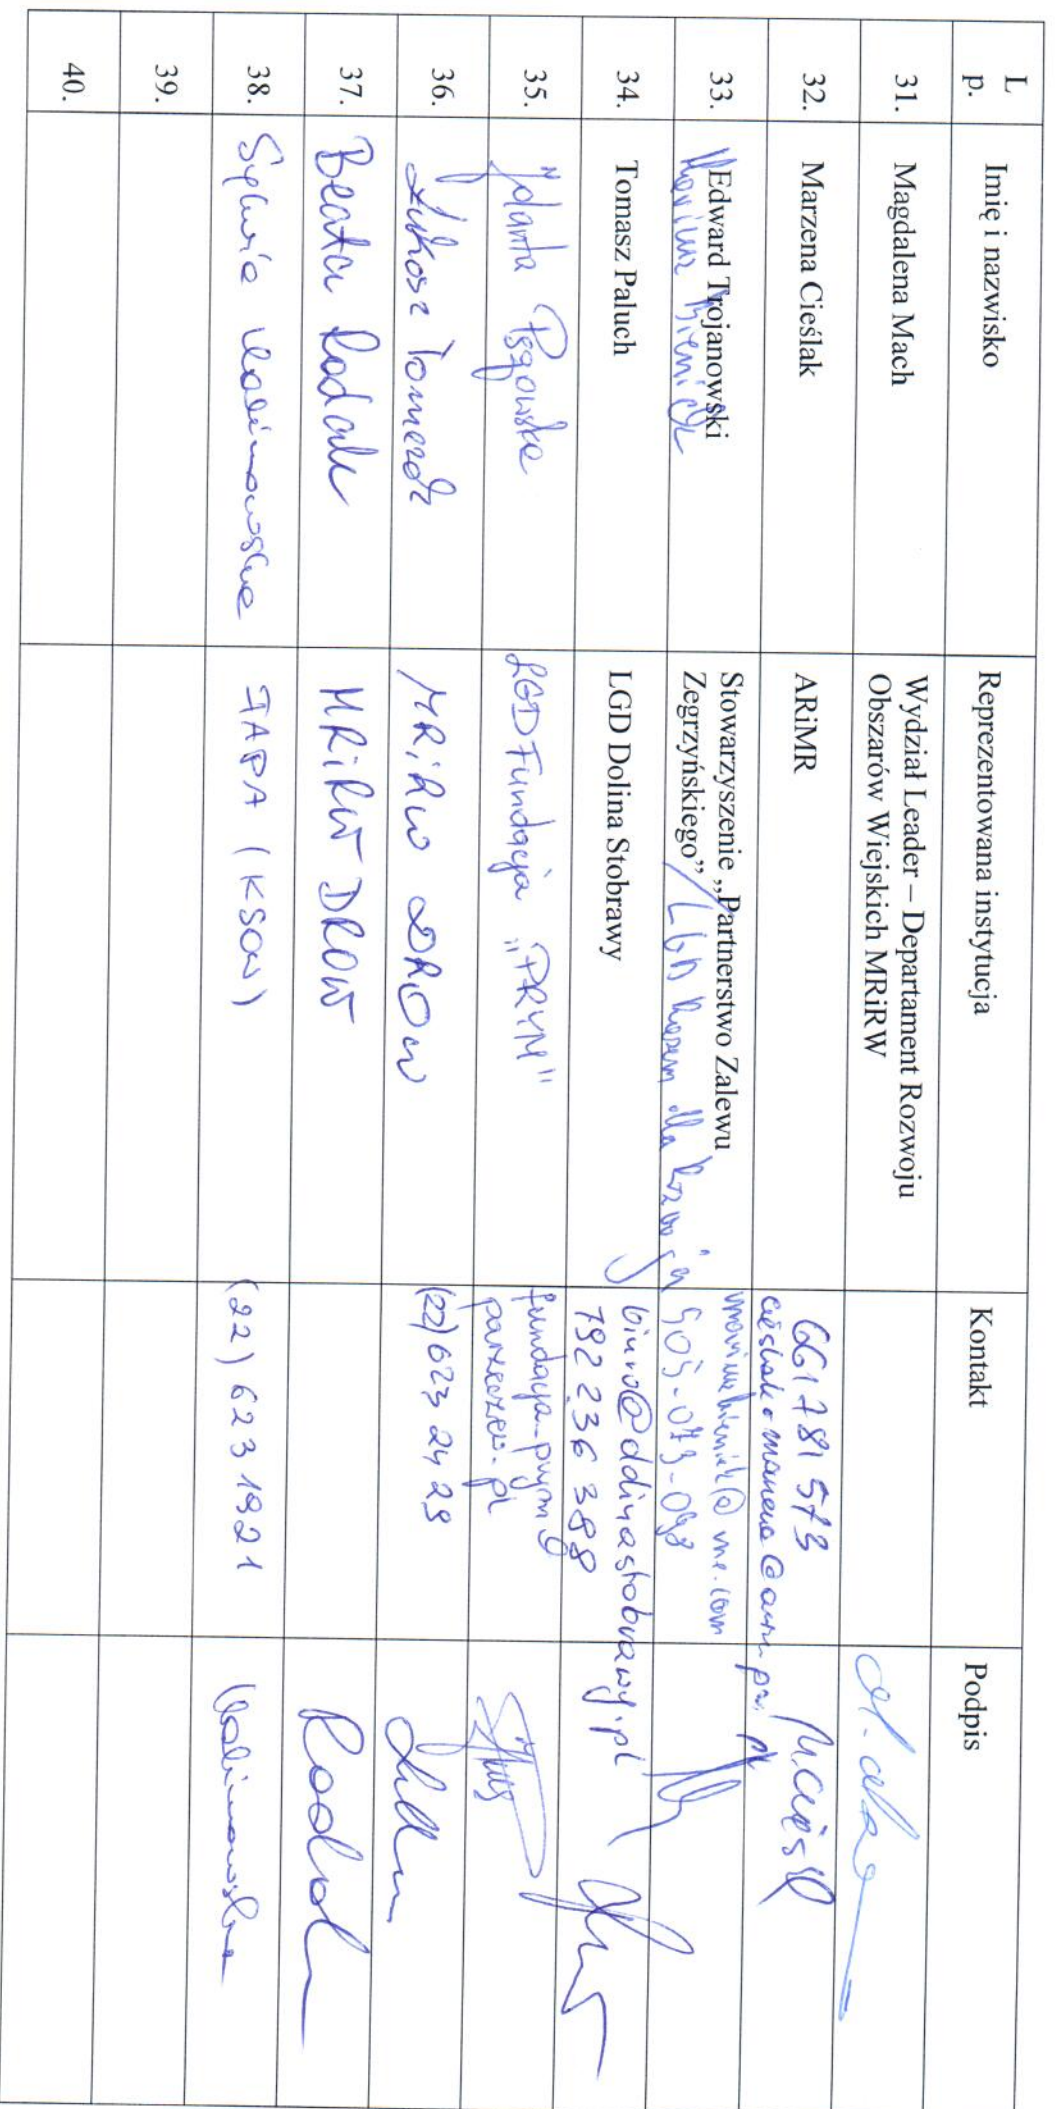 L
p.
Imię i nazwisko
Reprezentowana instytucja
Kontakt
Podpis
31.
Magdalena Mach
Wydział Leader – Departament Rozwoju
Obszarów Wiejskich MRiRW
32.
Marzena Cieślak
ARiMR
661 781 573
33.
Edward Trojanowski
Stowarzyszenie „Partnerstwo Zalewu
Zegrzyńskiego” / LGD Razem dla Rozwoju
34.
Tomasz Paluch
LGD Dolina Stobrawy
biuro@dolinastobrawy.pl
792 236 388
35.
Jolanta
LGD Fundacja „PRYM"
fundacja-prym@
parzeczew.pl
36.
Łukasz Tomczak
MRiRW DROW
(22) 623 24 29
37.
Beata Rodak
MRiRW DROW
Rodak
38.
Sylwia Kalinowska
FAPA (KSOW)
(22) 623 1921
Kalinowska
39.
40.